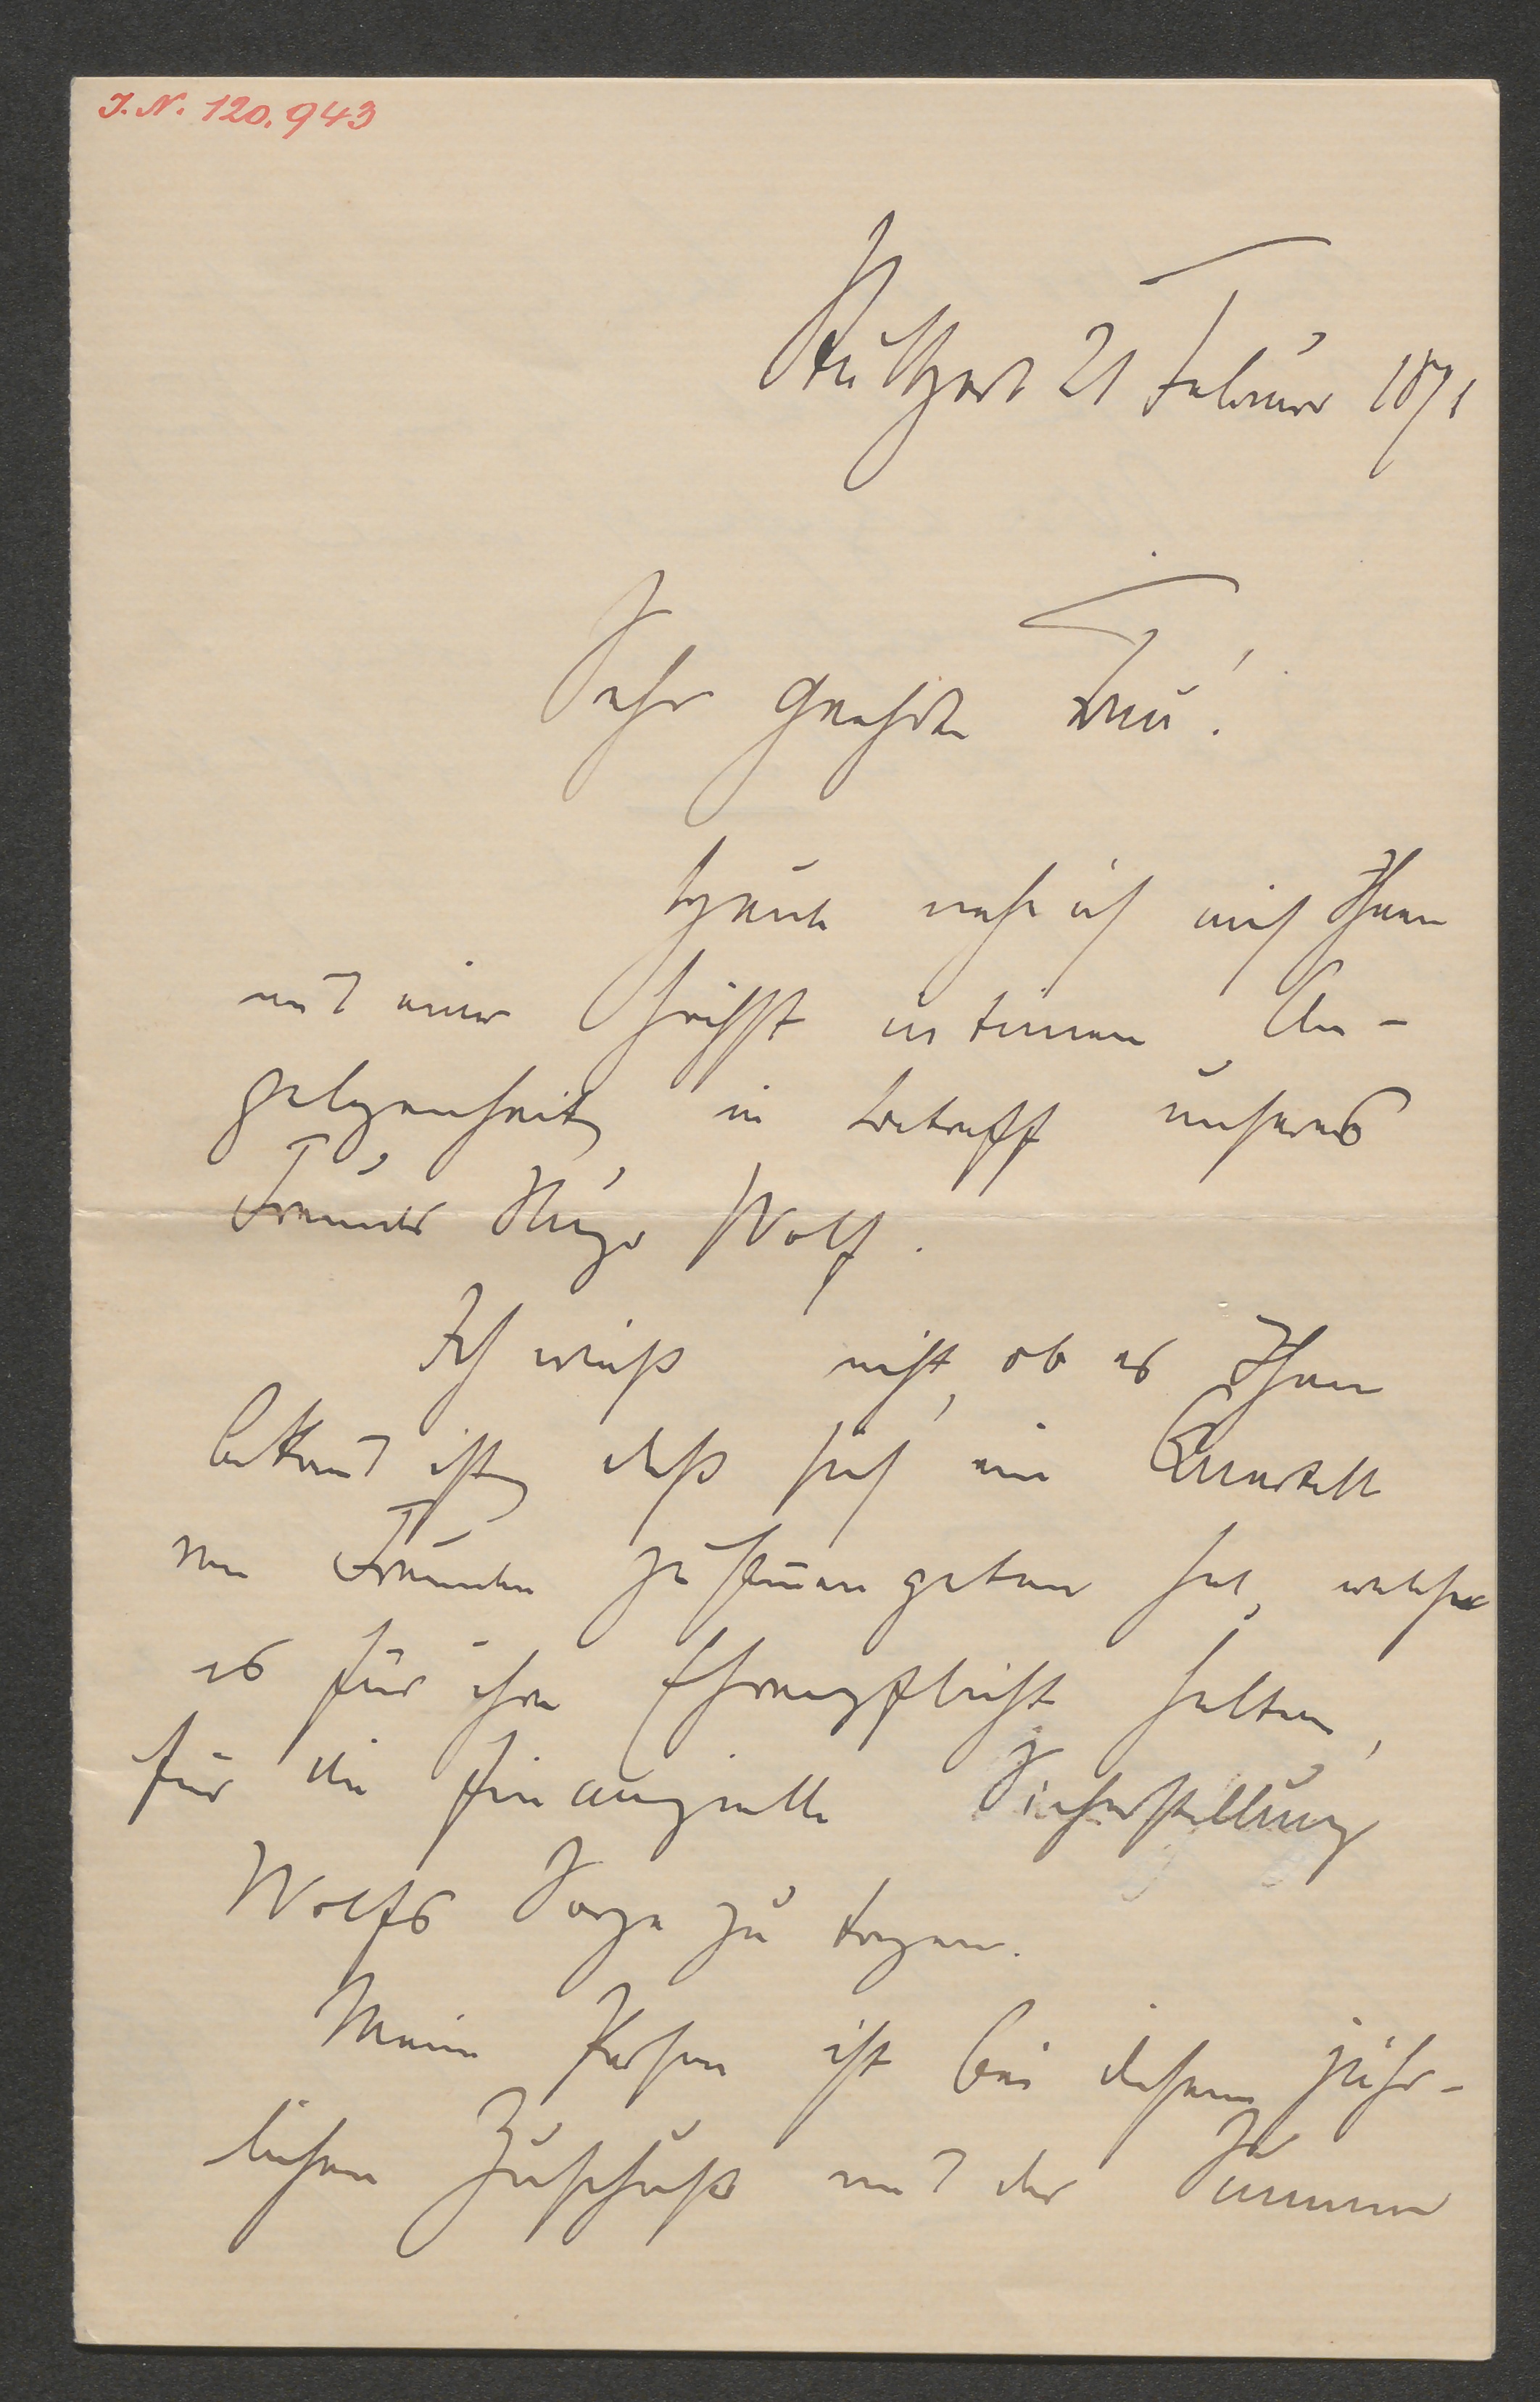 I. N. 120.943
Stuttgart 21 Februar 1871
Sehr geehrte Frau!
Heute nahe ich mich Ihnen
mit einer höchst intimen An-
gelegenheit, in betreff unseres
Freundes Hugo Wolf.
Ich weiß nicht, ob es Ihnen
bekannt ist, daß sich ein Quartett
von Freunden zusammen getan hat, welche
es für ihre Ehrenpflicht halten,
für die finanzielle Sicherstellung
Wolfs Sorge zu tragen.
Meine Person ist bei diesem jähr-
lichen Zuschuß mit der Summe